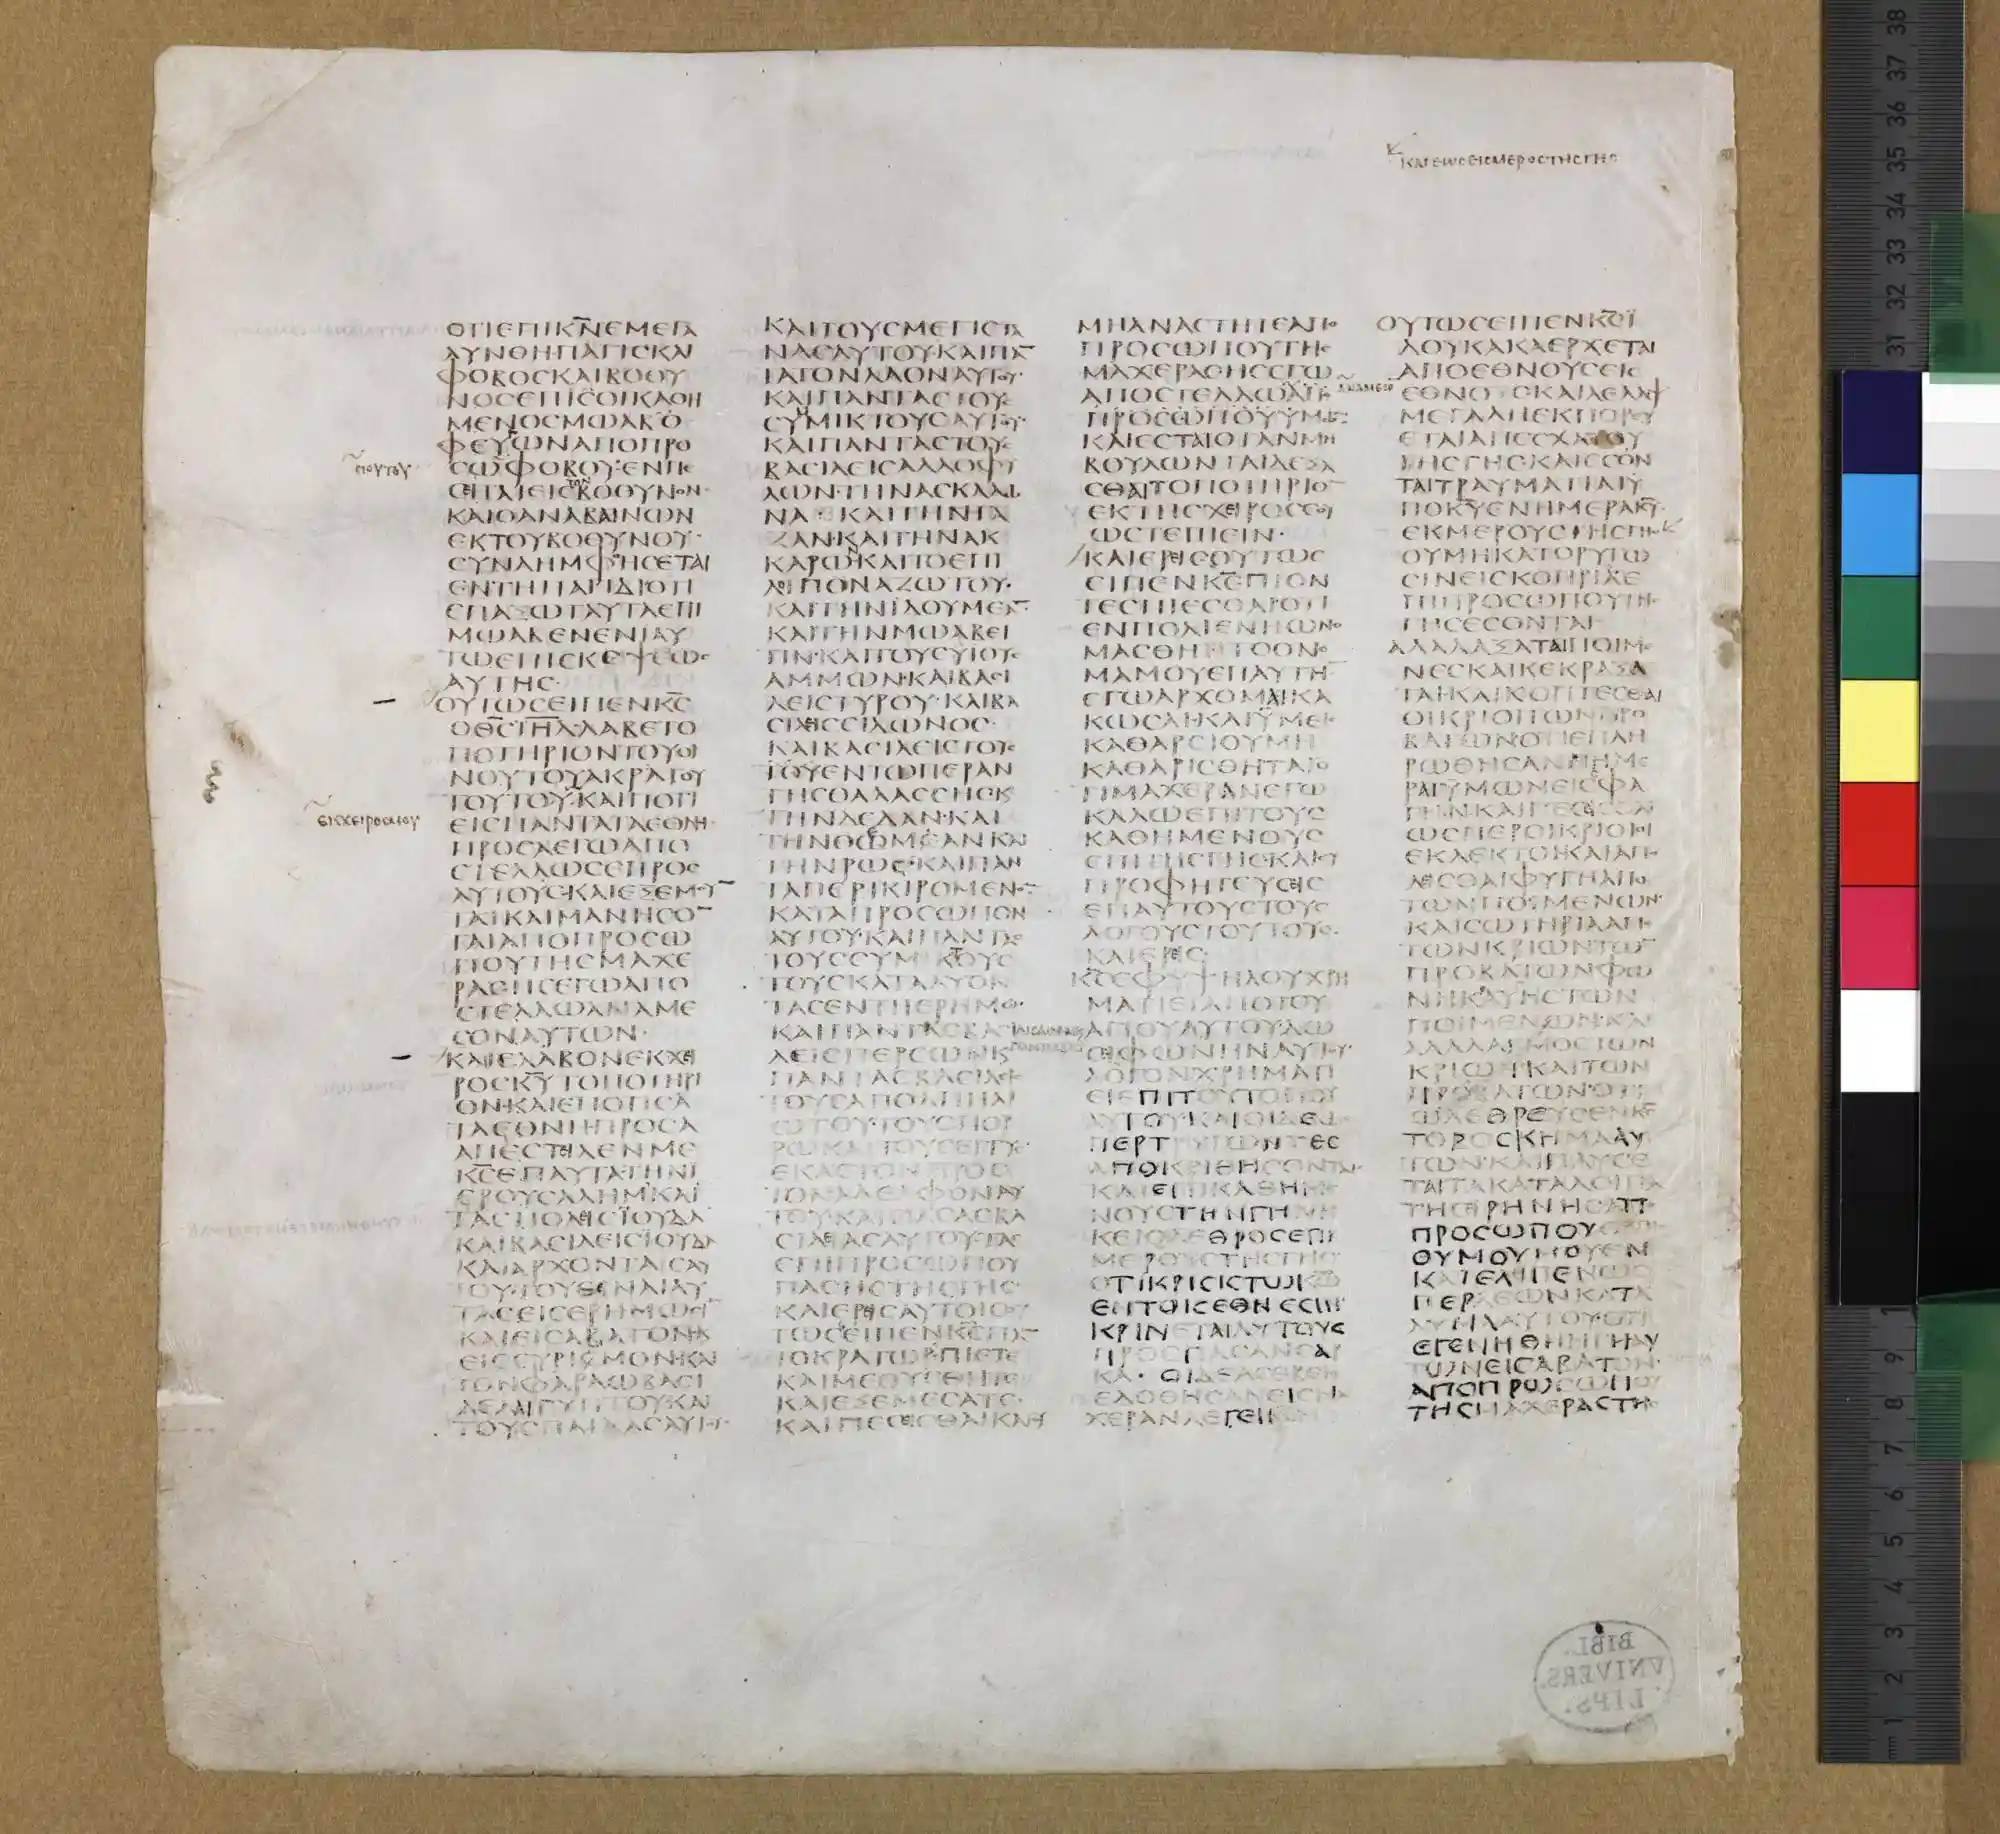 ΚΑΙΕΩϹΕΙϹΜΕΡΟϹΤΗϹΓΗϹ
ΟΤΙΕΠΙΚ̅Ν̅ΕΜΕΓΑ
ΛΥΝΘΗΠΑΓΙϹΚΑΙ
ΦΟΒΟϹΚΑΙΒΟΘΥ
ΝΟϹΕΠΙϹΟΙΚΑΘΗ
ΜΕΝΟϹΜΩΑΒΟ
ΦΕΥΓΩΝΑΠΟΠΡΟ
ϹΩΦΟΒΟΥ·ΕΝΠΕ
ΠΟΥΤΟΥ
ϹΕΙΤΑΙΕΙϹΒΟΘΥΝΟΝ·
ΤΟΝ
ΚΑΙΟΑΝΑΒΑΙΝΩΝ
ΕΚΤΟΥΒΟΘΥΝΟΥ·
ϹΥΝΛΗΜΦΘΗϹΕΤΑΙ
ΕΝΤΗΠΑΓΙΔΙΟΤΙ
ΕΠΑΞΩΤΑΥΤΑΕΠΙ
ΜΩΑΒΕΝΕΝΙΑΥ
ΤΩΕΠΙϹΚΕΨΕΩϹ
ΑΥΤΗϹ·
ΟΥΤΩϹΕΙΠΕΝΚ̅Ϲ̅
ΟΘ̅Ϲ̅Ι̅Η̅Λ̅·ΛΑΒΕΤΟ
ΠΟΤΗΡΙΟΝΤΟΥΟΙ
ΝΟΥΤΟΥΑΚΡΑΤΟΥ
ΤΟΥΤΟΥ·ΚΑΙΠΟΤΙ
ΕΚΧΕΙΡΟϹΜΟΥ
ΕΙϹΠΑΝΤΑΤΑΕΘΝΗ·
ΠΡΟϹΑΕΓΩΑΠΟ
ϹΤΕΛΛΩϹΕΠΡΟϹ
ΑΥΤΟΥϹ·ΚΑΙΕΞΕΜΟΥ̅
ΤΑΙΚΑΙΜΑΝΗϹΟ̅
ΤΑΙΑΠΟΠΡΟϹΩ
ΠΟΥΤΗϹΜΑΧΕ
ΡΑϹΗϹΕΓΩΑΠΟ
ϹΤΕΛΛΩΑΝΑΜΕ
ϹΟΝΑΥΤΩΝ·
ΚΑΙΕΛΑΒΟΝΕΚΧΕΙ
ΡΟϹΚ̅Υ̅ΤΟΠΟΤΗΡΙ
ΟΝ·ΚΑΙΕΠΟΤΙϹΑ
ΤΑΕΘΝΗΠΡΟϹΑ
ΑΠΕϹΤΕΙΛΕΝΜΕ
Κ̅Ϲ̅ΕΠΑΥΤΑΤΗΝΙ
ΕΡΟΥϹΑΛΗΜ·ΚΑΙ
ΤΑϹΠΟΛΕΙϹΪΟΥΔΑ
ΚΑΙΒΑϹΙΛΕΙϹΪΟΥΔΑ
ΚΑΙΑΡΧΟΝΤΑϹΑΥ
ΤΟΥ·ΤΟΥΘΕΙΝΑΙΑΥ
ΤΑϹΕΙϹΕΡΗΜΩϹΙ̅
ΚΑΙΕΙϹΑΒΑΤΟΝ·Κ
ΕΙϹϹΥΡΙϹΜΟΝ·ΚΑΙ
ΤΟΝΦΑΡΑΩΒΑϹΙ
ΛΕΑΑΙΓΥΠΤΟΥ·ΚΑΙ
ΤΟΥϹΠΑΙΔΑϹΑΥΤΟΥ·
ΚΑΙΤΟΥϹΜΕΓΙϹΤΑ
ΝΑϹΑΥΤΟΥ·ΚΑΙΠΑ̅
ΤΑΤΟΝΛΑΟΝΑΥΤΟΥ·
ΚΑΙΠΑΝΤΑϹΤΟΥϹ
ϹΥΜΙΚΤΟΥϹΑΥΤΟΥ·
ΚΑΙΠΑΝΤΑϹΤΟΥϹ
ΒΑϹΙΛΕΙϹΑΛΛΟΦΥ
ΛΩΝ·ΤΗΝΑϹΚΑΛΩ
ΝΑ·ΚΑΙΤΗΝΓΑ
ΖΑΝ·ΚΑΙΤΗΝΑΚ
ΚΑΡΩΝ·ΚΑΙΤΟΕΠΙ
ΛΟΙΠΟΝΑΖΩΤΟΥ·
ΚΑΙΤΗΝΙΔΟΥΜΕΑ̅·
ΚΑΙΤΗΝΜΩΑΒΕΙ
ΤΙΝ·ΚΑΙΤΟΥϹΥΙΟΥϹ
ΑΜΜΩΝ·ΚΑΙΒΑϹΙ
ΛΕΙϹΤΥΡΟΥ·ΚΑΙΒΑ
ϹΙΛΕΙϹϹΙΔΩΝΟϹ·
ΚΑΙΒΑϹΙΛΕΙϹΤΟΥϹ
ΤΟΥΕΝΤΩΠΕΡΑΝ
ΤΗϹΘΑΛΑϹϹΗϹ·Κ
ΤΗΝΔΕΔΑΝ·ΚΑΙ
ΤΗΝΘΕΜΑΝ·ΚΑΙ
ΤΗΝΡΩϹ·ΚΑΙΠΑΝ
ΤΑΠΕΡΙΚΙΡΟΜΕΝΟ̅
ΚΑΤΑΠΡΟϹΩΠΟΝ
ΑΥΤΟΥ·ΚΑΙΠΑΝΤΑϹ
ΤΟΥϹϹΥΜΙΚΤΟΥϹ
ΤΟΥϹΚΑΤΑΛΥΟΝ
ΤΑϹΕΝΤΗΕΡΗΜΩ·
ΚΑΙΠΑΝΤΑϹΒΑϹΙ
ΛΕΙϹΠΕΡϹΩΝ·Κ
ΠΑΝΤΑϹΒΑϹΙΛΕΙϹ
ΤΟΥϹΑΠΟΑΠΗΛΙ
ΩΤΟΥ·ΤΟΥϹΠΟΡ
ΡΩΚΑΙΤΟΥϹΕΓΓΥϹ·
ΕΚΑϹΤΟΝΠΡΟϹ
ΤΟΝΑΔΕΛΦΟΝΑΥ
ΤΟΥ·ΚΑΙΠΑϹΑϹΒΑ
ϹΙΛΕΙΑϹΑΥΤΟΥ·ΤΑϹ
ΕΠΙΠΡΟϹΩΠΟΥ
ΠΑϹΗϹΤΗϹΓΗϹ·
ΚΑΙΕΡΕΙϹΑΥΤΟΙϹΟΥ
ΤΩϹΕΙΠΕΝΚ̅Ϲ̅ΠΑ̅
ΤΟΚΡΑΤΩΡ·ΠΙΕΤΕ
ΚΑΙΜΕΘΥϹΘΗΤΕ
ΚΑΙΕΞΕΜΕϹΑΤΕ·
ΚΑΙΠΕϹΕΙϹΘΑΙΚΑΙΟΥ
ΜΗΑΝΑϹΤΗΤΕΑΠΟ
ΠΡΟϹΩΠΟΥΤΗϹ
ΜΑΧΕΡΑϹΗϹΕΓΩ
ΑΠΟϹΤΕΛΛΩΑΠΟ
ΑΝΑΜΕϹΟ̅
ΠΡΟϹΩΠΟΥΥΜΩ̅
ΚΑΙΕϹΤΑΙΟΤΑΝΜΗ
ΒΟΥΛΩΝΤΑΙΔΕΞΑ
ϹΘΑΙΤΟΠΟΤΗΡΙΟ̅
ΕΚΤΗϹΧΕΙΡΟϹϹΟΥ
ΩϹΤΕΠΙΕΙΝ·
ΚΑΙΕΡΕΙϹΟΥΤΩϹ
ΕΙΠΕΝΚ̅Ϲ̅ΠΙΟΝ
ΤΕϹΠΙΕϹΘΑΙΟΤΙ
ΕΝΠΟΛΙΕΝΗΩΝΟ
ΜΑϹΘΗΤΟΟΝΟ
ΜΑΜΟΥΕΠΑΥΤΗ̅
ΕΓΩΑΡΧΟΜΑΙΚΑ
ΚΩϹΑΙ·ΚΑΙΫΜΕΙϹ
ΚΑΘΑΡϹΙΟΥΜΗ
ΚΑΘΑΡΙϹΘΗΤΑΙΟ
ΤΙΜΑΧΕΡΑΝΕΓΩ
ΚΑΛΩΕΠΙΤΟΥϹ
ΚΑΘΗΜΕΝΟΥϹ
ΕΠΙΤΗϹΓΗϹ·ΚΑΙϹΥ
ΠΡΟΦΗΤΕΥϹΕΙϹ
ΕΠΑΥΤΟΥϹΤΟΥϹ
ΛΟΓΟΥϹΤΟΥΤΟΥϹ·
ΚΑΙΕΡΕΙϹ
Κ̅Ϲ̅ΕΦΥΨΗΛΟΥΧΡΗ
ΜΑΤΙΕΙΑΠΟΤΟΥ
ΑΓΙΟΥΑΥΤΟΥΔΩ
ϹΕΙΦΩΝΗΝΑΥΤΟΥ·
ΛΟΓΟΝΧΡΗΜΑΤΙ
ΕΙΕΠΙΤΟΥΤΟΠΟΥ
ΑΥΤΟΥ·ΚΑΙΟΙΔΕΩϹ
ΠΕΡΤΡΥΓΩΝΤΕϹ
ΑΠΟΚΡΙΘΗϹΟΝΤΑΙ·
ΚΑΙΕΠΙΚΑΘΗΜΕ
ΝΟΥϹΤΗΝΓΗΝΗ
ΚΕΙΟΛΕΘΡΟϹΕΠΙ
ΜΕΡΟΥϹΤΗϹΓΗϹ
ΟΤΙΚΡΙϹΙϹΤΩΚ̅Ω̅
ΕΝΤΟΙϹΕΘΝΕϹΙΝ·
ΚΡΙΝΕΤΑΙΑΥΤΟΥϹ
ΠΡΟϹΠΑϹΑΝϹΑΡ
ΚΑ·ΟΙΔΕΑϹΕΒΕΙϹ
ΕΔΟΘΗϹΑΝΕΙϹΜΑ
ΧΕΡΑΝΛΕΓΕΙΚ̅Ϲ̅
ΟΥΤΩϹΕΙΠΕΝΚ̅Ϲ̅ΟΪ
ΔΟΥΚΑΚΑΕΡΧΕΤΑΙ
ΑΠΟΕΘΝΟΥϹΕΙϹ
ΕΘΝΟϹΚΑΙΛΕΛΑΨ
ΜΕΓΑΛΗΕΚΠΟΡΕΥ
ΕΤΑΙΑΠΕϹΧΑΤΟΥ
ΤΗϹΓΗϹ·ΚΑΙΕϹΟΝ
ΤΑΙΤΡΑΥΜΑΤΙΑΙΫ
ΠΟΚ̅Υ̅ΕΝΗΜΕΡΑΚ̅Υ̅·
ΕΚΜΕΡΟΥϹΤΗϹΓΗϹ
ΟΥΜΗΚΑΤΟΡΥΓΩ
ϹΙΝΕΙϹΚΟΠΡΙΑΕ
ΠΙΠΡΟϹΩΠΟΥΤΗϹ
ΓΗϹΕϹΟΝΤΑΙ·
ΑΛΑΛΑΞΑΤΑΙΠΟΙΜΕ
ΝΕϹΚΑΙΚΕΚΡΑΞΑ
ΤΑΙ·ΚΑΙΚΟΠΤΕϹΘΑΙ
ΟΙΚΡΙΟΙΤΩΝΠΡΟ
ΒΑΤΩΝ·ΟΤΙΕΠΛΗ
ΡΩΘΗϹΑΝΑΙΗΜΕ
ΡΑΙΫΜΩΝΕΙϹϹΦΑ
ΓΗΝ·ΚΑΙΠΕϹΕΙϹΘΑΙ
ΩϹΠΕΡΟΙΚΡΙΟΙΟΙ
ΕΚΛΕΚΤΟΙ·ΚΑΙΑΠΟ
ΛΕΙϹΘΑΙΦΥΓΗΑΠΟ
ΤΩΝΠΟΙΜΕΝΩΝ·
ΚΑΙϹΩΤΗΡΙΑΑΠΟ
ΤΩΝΚΡΙΩΝΤΩ̅
ΠΡΟΒΑΤΩΝΦΩ
ΝΗΚΑΥΗϹΤΩΝ
ΠΟΙΜΕΝΩΝ·ΚΑΙ
ΑΛΑΛΑΓΜΟϹΤΩΝ
ΚΡΙΩΝ·ΚΑΙΤΩΝ
ΠΡΟΒΑΤΩΝ·ΟΤΙ
ΩΛΕΘΡΕΥϹΕΝΚ̅Ϲ̅
ΤΟΒΟϹΚΗΜΑΑΥ
ΤΩΝ·ΚΑΙΠΑΥϹΕ
ΤΑΙΤΑΚΑΤΑΛΟΙΠΑ
ΤΗϹΕΙΡΗΝΗϹΑΠΟ
ΠΡΟϹΩΠΟΥ
ΘΥΜΟΥΜΟΥΕΝ
ΚΑΤΕΛΙΠΕΝΩϹ
ΠΕΡΛΕΩΝΚΑΤΑ
ΛΥΜΑΑΥΤΟΥ·ΟΤΙ
ΕΓΕΝΗΘΗΗΓΗΑΥ
ΤΩΝΕΙϹΑΒΑΤΟΝ·
ΑΠΟΠΡΟϹΩΠΟΥ
ΤΗϹΜΑΧΕΡΑϹΤΗϹ
BIBL.
VNIVERS.
LIPS.